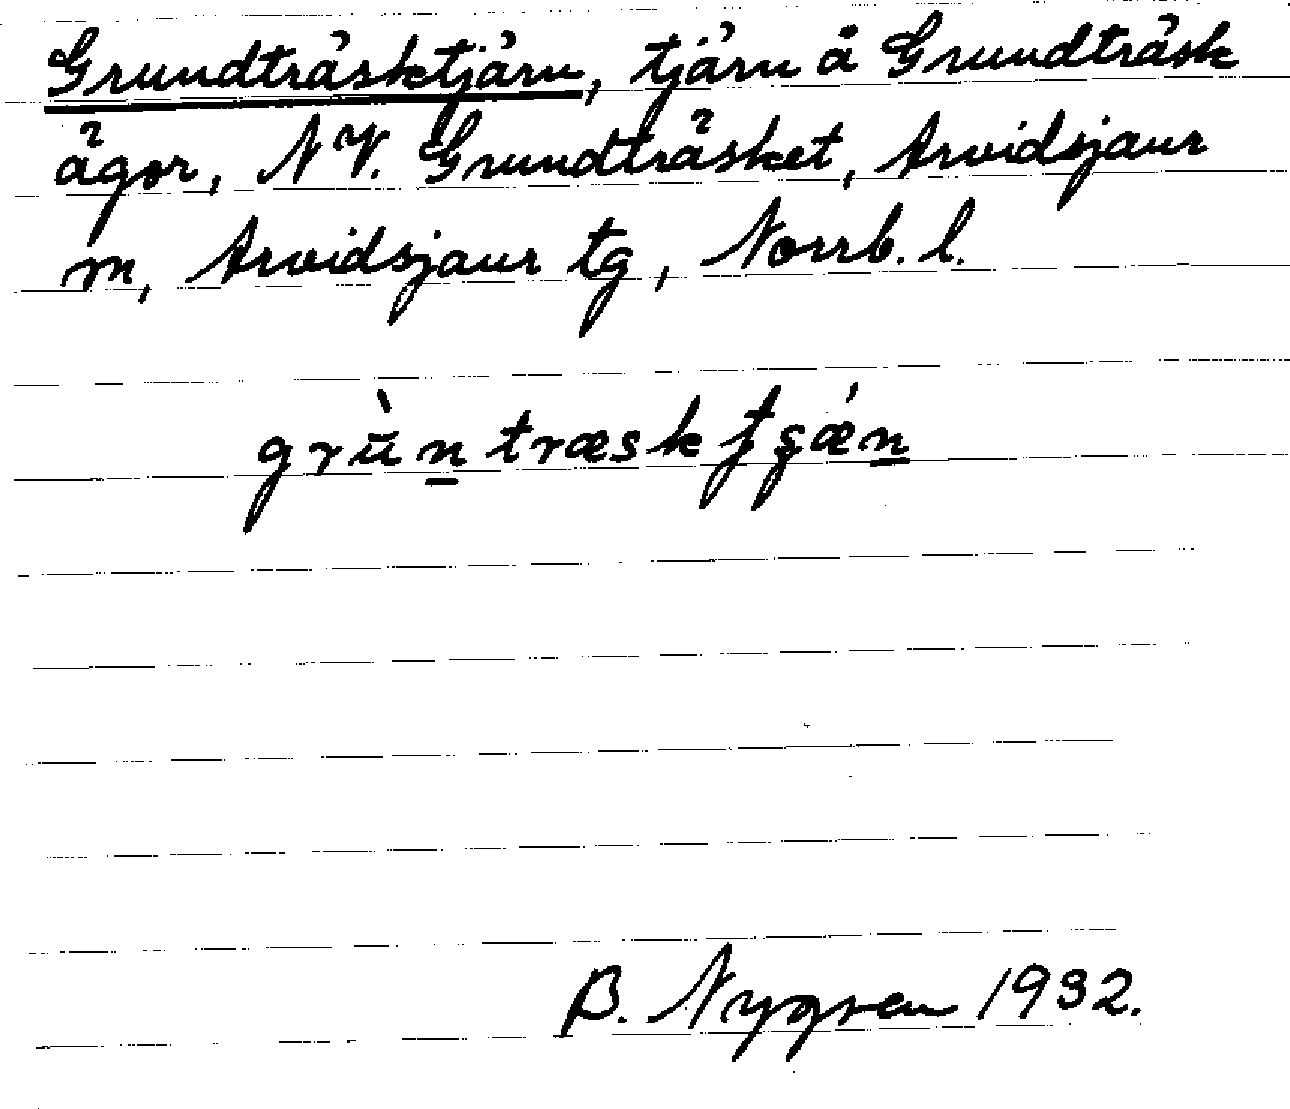 Grundträsktjärn, tjärn å Grundträsk
ägor, NV. Grundträsket, Arvidsjaur
m, Arvidsjaur tg, Norrb. l.
grù̈n̲træskʄʂǽn̲
B. Nygren 1932.